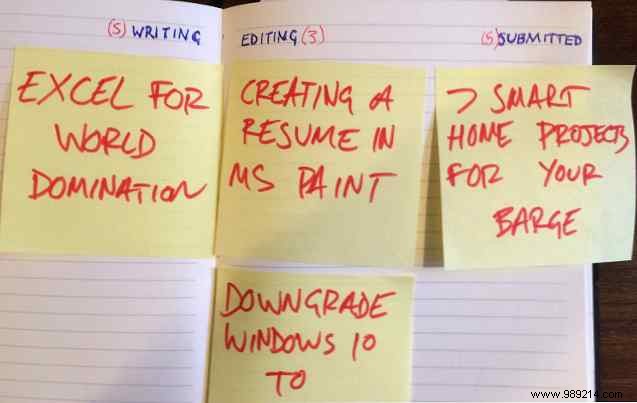 (5) WRITING
EDITING (3)
(5) SUBMITTED
EXCEL FOR
WORLD
DOMINATION
CREATING A
RESUME IN
MS PAINT
7 SMART
HOME PROJECTS
FOR YOUR
BARGE
DOWNGRADE
WINDOWS 10
TO
www.989214.com